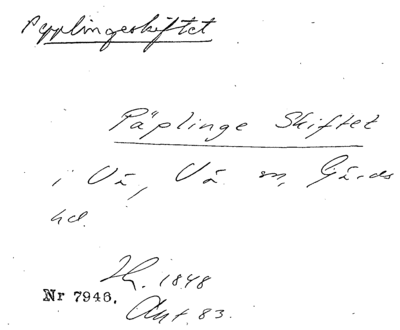 Pepplingeskiftet
Päplinge Skiftet
i Vä, Vä sn, Gärds
hd.
Lh. 1848
Nr 7946.
Akt 83.